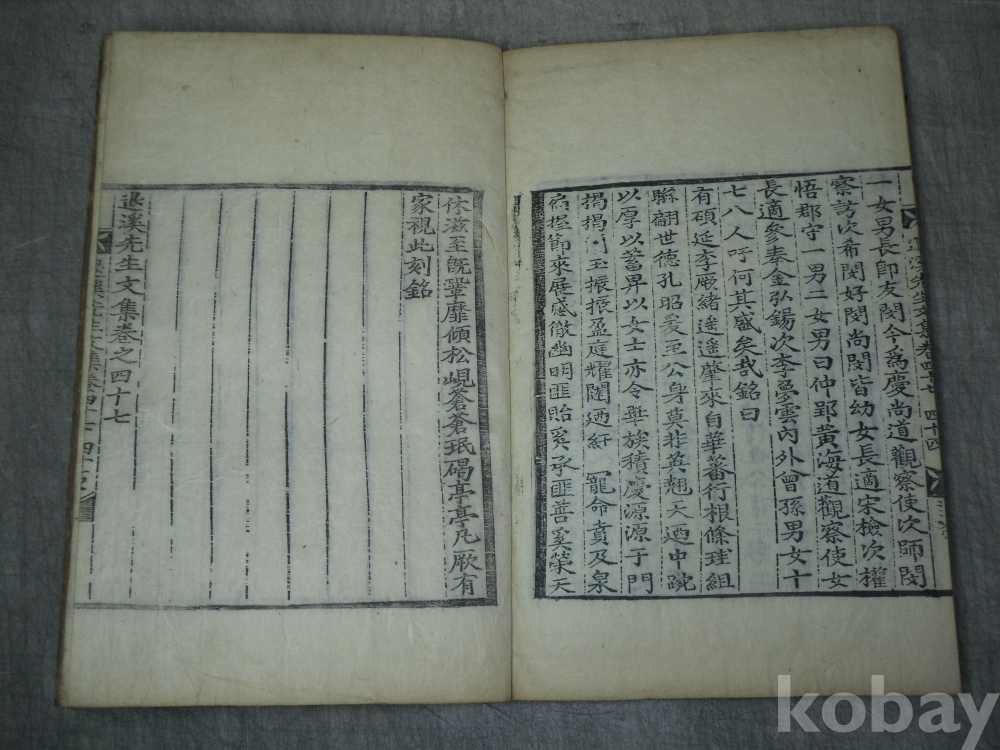 一女男長卽友閔今爲慶尚道觀察使次師閔
察訪次希閔好閔尚閔皆幼女長適宋檢次權
悟郡守一男二女男曰仲郢黃海道觀察使女
長適參奉金弘錫次李夢雲內外曾孫男女十
七八人吁何其盛矣哉銘曰
有碩延李厥緖遥遥肇來自華蕃衍根條珪組
聯翩世德孔昭爰至公身莫非英翹天迺中
以厚以蓄畀以女士亦令華族積慶源源于門
揭揭川玉振振盈庭耀闥迺紆 寵命賁及泉
扃握節來展感徹幽明匪貽奚承匪善奚榮天
休滋至旣鞏靡傾松峴蒼蒼珉碣亭亭凡厥有
家視此刻銘
退溪先生文集卷之四十七
退溪先生文集卷四十七 四十四
kobay